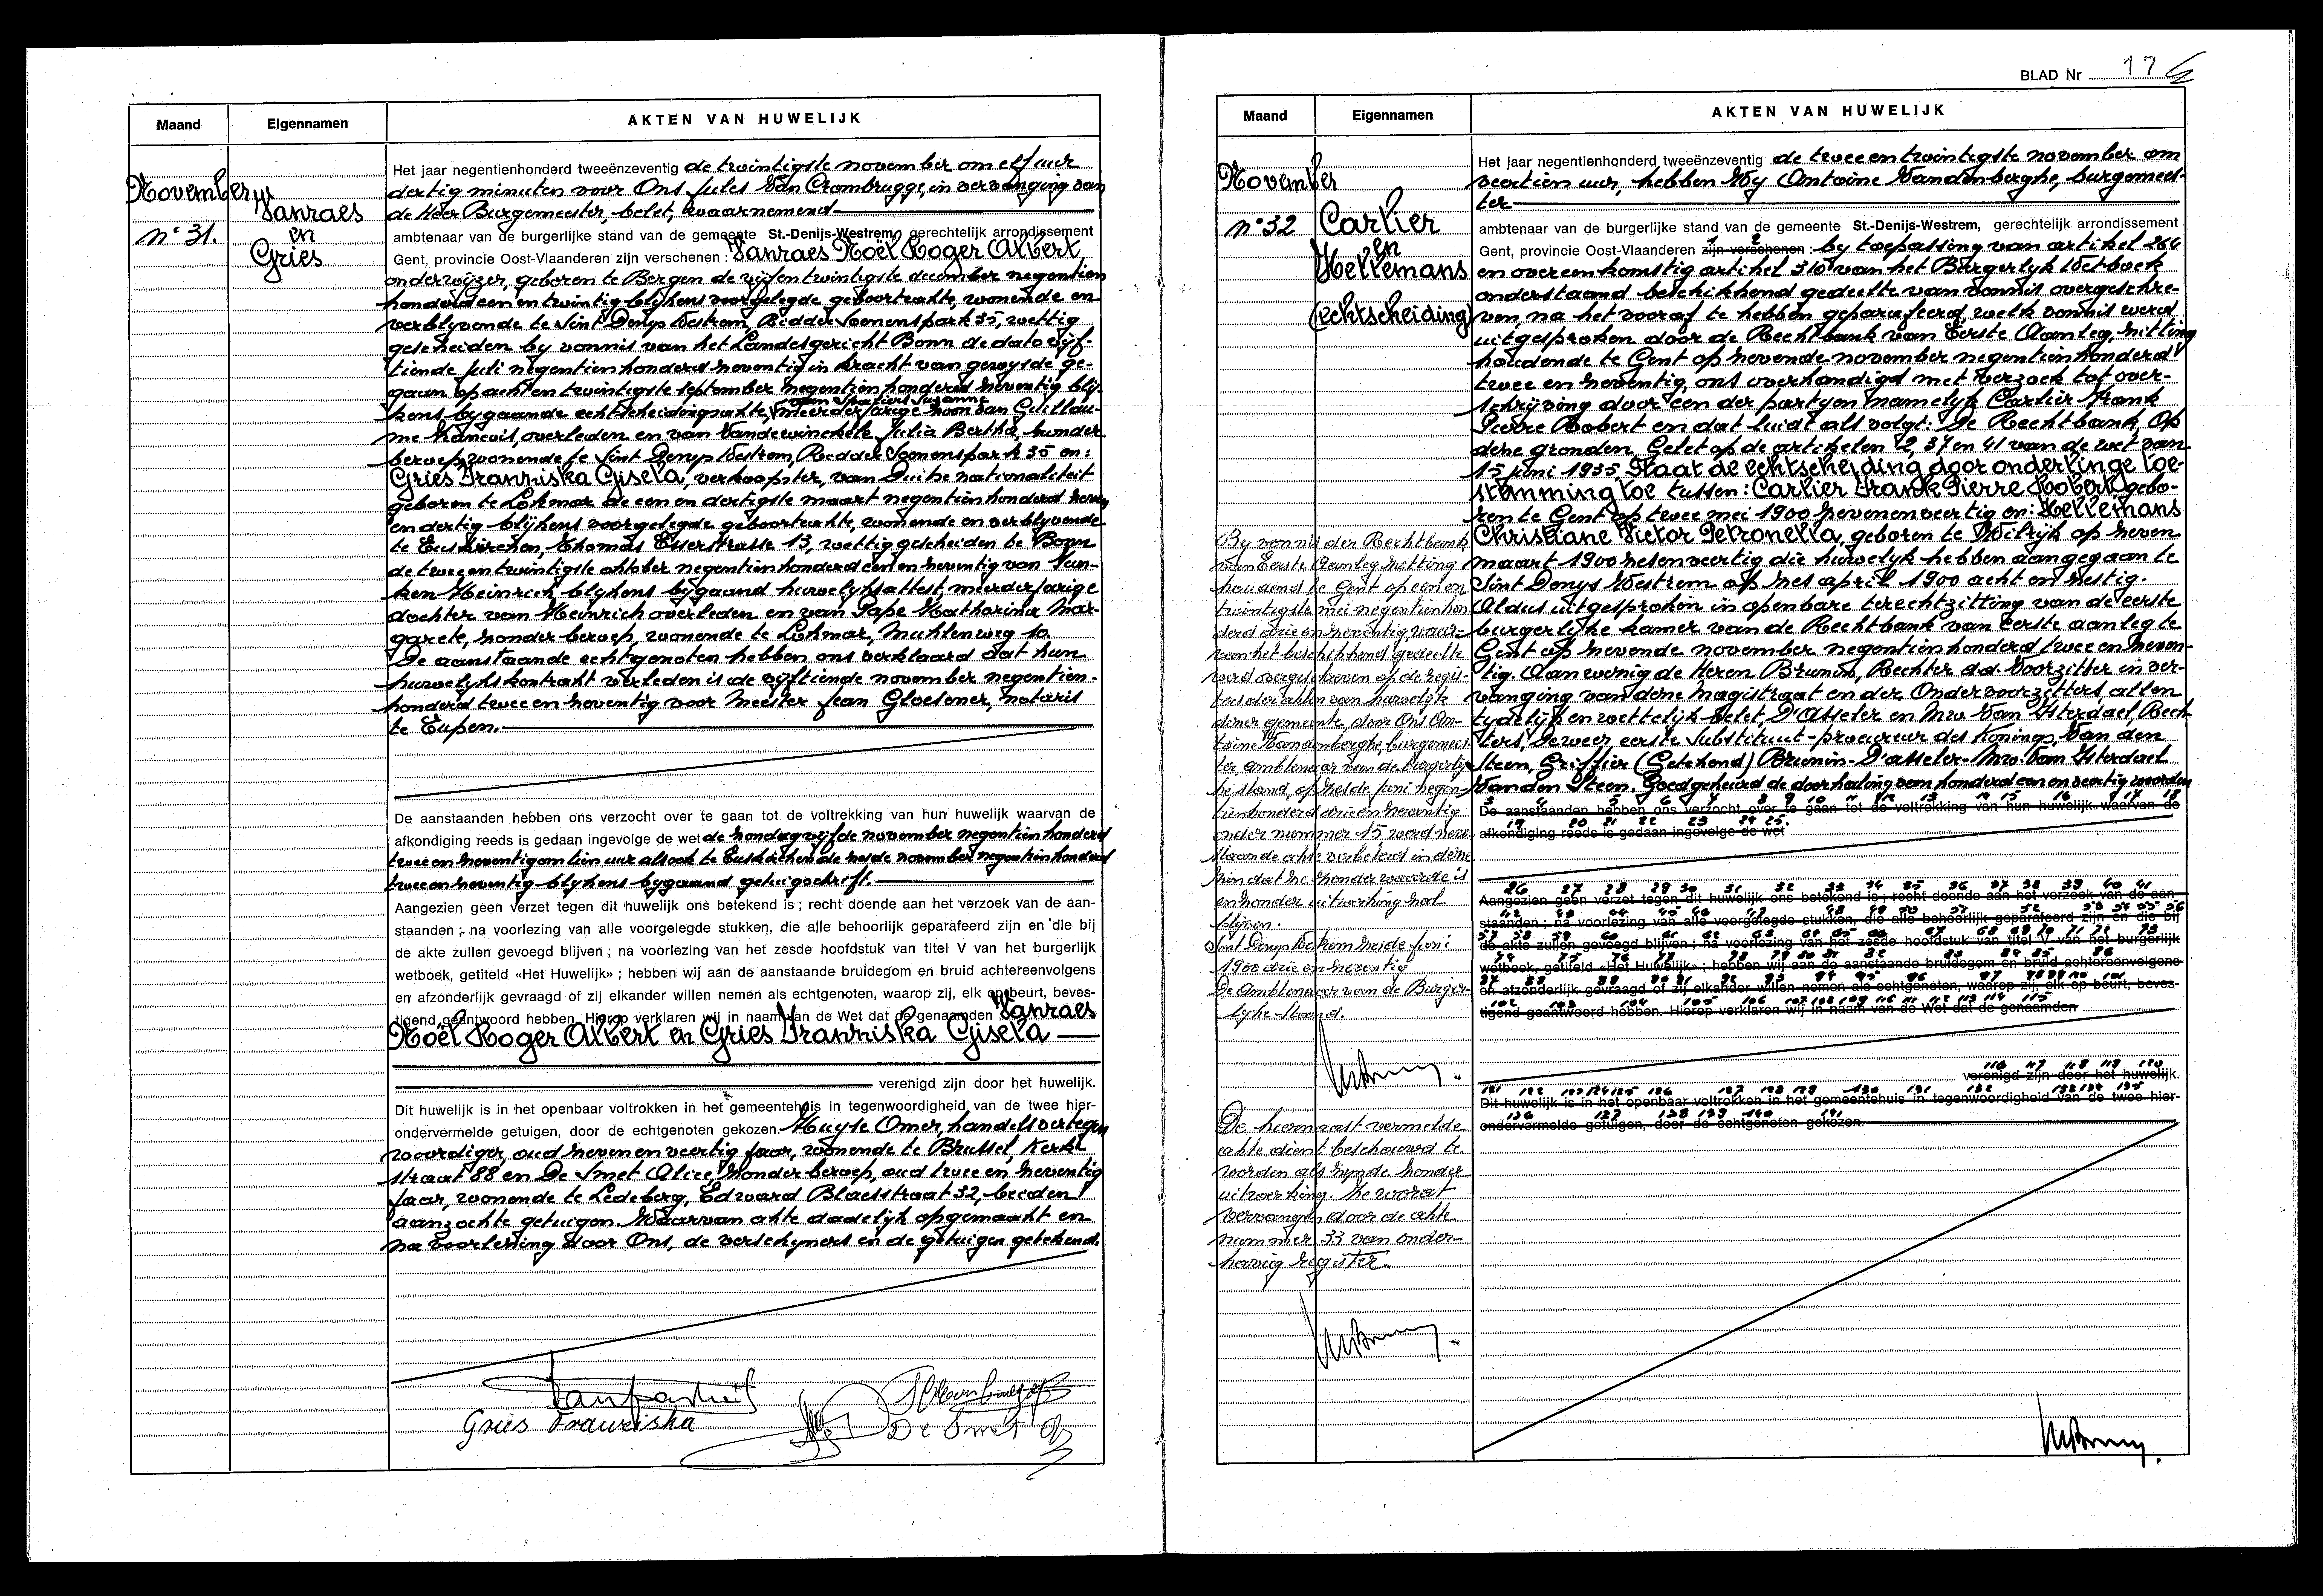 Maand
Eigennamen
AKTEN VAN HUWELIJK
November
n° 31.
Vanraes
en
Gries
Het jaar negentienhonderd tweeënzeventig de twintigste november om elf uur
dertig minuten voor Ons Jules Van Crombrugge, in vervanging van
de Heer Burgemeester belet, waarnemend
ambtenaar van de burgerlijke stand van de gemeente St.-Denijs-Westrem, gerechtelijk arrondissement
Gent, provincie Oost-Vlaanderen zijn verschenen : Vanraes Noël Roger Albert
onderwijzer, geboren te Bergen de vijfentwintigste december negentien
honderd een en twintig blijkens voorgelegde geboorteakte, wonende en
verblyvende te Sint Denys Westrem, Ridder Soenenspark 35, wettig
gescheiden by vonnis van het Landesgericht Bonn de dato vijf-
tiende juli negentienhonderd zeventig in kracht van gewysde ge-
gaan op acht en twintigste september negentienhonderd zeventig blij-
van Spatiers Suzanne
kens bygaande echtscheidingsakte, meerderjarige zoon van Guillau-
me Vanraes, overleden en van Vandewinckele Julia Bertha zonder
beroep, wonende te Sint Denys Westrem, Ridder Soenenspark 35 en:
Gries Franziska Gisela, verkoopster, van Duitse nationaliteit
geboren te Lohmar de een en dertigste maart negentienhonderd zeven
en dertig blijkens voorgelegde geboorteakte, wonende en verblyvende
te Euskirchen, Thomas Esserstrasse 13, wettig gescheiden te Bonn
de twee en twintigste oktober negentienhonderd een en zeventig van
ken Heinrich blijkens bijgaand huwelijksattest, meerderjarige
dochter van Heinrich overleden en van Pape Katharina Mar-
garete, zonder beroep, wonende te Lohmar, Muhlenweg 10.
De aanstaande echtgenoten hebben ons verklaard dat hun
huwelijkskontrakt verleden is de vijftiende november negentien-
honderd twee en zeventig voor Meester Jean Gloesener, notaris
te Eupen.
De aanstaanden hebben ons verzocht over te gaan tot de voltrekking van hun huwelijk waarvan de
afkondiging reeds is gedaan ingevolge de wet de zondag vijfde november negentienhonderd
twee en zeventig om tien uur alsook te Euskirchen de zesde november negentienhonderd
twee en zeventig blijkens bygaand getuigschrift.
Aangezien geen verzet tegen dit huwelijk ons betekend is ; recht doende aan het verzoek van de aan-
staanden ; na voorlezing van alle voorgelegde stukken, die alle behoorlijk geparafeerd zijn en die bij
de akte zullen gevoegd blijven ; na voorlezing van het zesde hoofdstuk van titel V van het burgerlijk
wetboek, getiteld «Het Huwelijk» ; hebben wij aan de aanstaande bruidegom en bruid achtereenvolgens
en afzonderlijk gevraagd of zij elkander willen nemen als echtgenoten, waarop zij, elk op beurt, beves-
tigend geantwoord hebben. Hierop verklaren wij in naam van de Wet dat de genaamden Vanraes
Noël Roger Albert en Gries Franziska Gisela
verenigd zijn door het huwelijk.
Dit huwelijk is in het openbaar voltrokken in het gemeentehuis in tegenwoordigheid van de twee hier-
ondervermelde getuigen, door de echtgenoten gekozen. Huyse Omer, handelsvertegen
woordiger, oud zeven en veertig jaar, wonende te Brussel, Kerk
straat 88 en De Smet Alice, zonder beroep, oud twee en zeventig
jaar, wonende te Ledeberg, Edward Blaesstraat 32, beiden
aanzochte getuigen. Waarvan akte dadelijk opgemaakt en
na voorlezing door Ons, de verschijners en de getuigen getekend.
Gries Franziska
De Smet
BLAD Nr 17
Maand
Eigennamen
AKTEN VAN HUWELIJK
November
n° 32
Carlier
en
Hellemans
(echtscheiding)
Het jaar negentienhonderd tweeënzeventig de twee en twintigste november om
veertien uur, hebben Wy Antoine Vandenberghe, burgemees-
ter
ambtenaar van de burgerlijke stand van de gemeente St.-Denijs-Westrem, gerechtelijk arrondissement
Gent, provincie Oost-Vlaanderen zijn verschenen : by toepassing van artikel 264
en overeenkomstig artikel 310 van het Burgerlyk Wetboek
onderstaand beschikkend gedeelte van vonnis overgeschre-
ven, na het vooraf te hebben geparafeerd, welk vonnis werd
uitgesproken door de Rechtbank van Eerste Aanleg, zitting
houdende te Gent op zevende november negentienhonderd
twee en zeventig, ons overhandigd met verzoek tot over-
schrijving door een der partyen namelyk Carlier Frank
Pierre Robert en dat luidt als volgt: De Rechtbank, Op
deze gronden, Gelet op de artikelen 2, 37 en 41 van de wet van
15 juni 1935 Staat de echtscheiding door onderlinge toe-
stemming toe tussen: Carlier Frank Pierre Robert gebo-
ren te Gent op twee mei 1900 zevenenveertig en: Hellemans
Christiane Victor Petronella, geboren te Wilrijk op zeven
maart 1900 zesenveertig die huwelyk hebben aangegaan te
Sint Denys Westrem op zes april 1900 acht en zestig.
Aldus uitgesproken in openbare terechtzitting van de eerste
burgerlijke kamer van de Rechtbank van eerste aanleg te
Gent op zevende november negentienhonderd twee en zeven-
tig. Aanwezig de Heren Brunin, Rechter d.d. Voorzitter in ver-
vanging van deze Magistraat en der Ondervoorzitters allen
tydelijk en wettelijk belet, D'Asseler en Mw. Van Ysterdael, Rech-
ters, Deweer eerste Substituut-procureur des Konings, Van den
Steen, Griffier (Getekend) Brunin-D'asseler-Mw. Van Ysterdael
Van den Steen. Goedgekeurd de doorhaling van honderd een en veertig woorden
De aanstaanden hebben ons verzocht over te gaan tot de voltrekking van hun huwelijk waarvan de
afkondiging reeds is gedaan ingevolge de wet
Aangezien geen verzet tegen dit huwelijk ons betekend is ; recht doende aan het verzoek van de aan-
staanden ; na voorlezing van alle voorgelegde stukken, die alle behoorlijk geparafeerd zijn en die bij
de akte zullen gevoegd blijven ; na voorlezing van het zesde hoofdstuk van titel V van het burgerlijk
wetboek, getiteld «Het Huwelijk» ; hebben wij aan de aanstaande bruidegom en bruid achtereenvolgens
en afzonderlijk gevraagd of zij elkander willen nemen als echtgenoten, waarop zij, elk op beurt, beves-
tigend geantwoord hebben. Hierop verklaren wij in naam van de Wet dat de genaamden
verenigd zijn door het huwelijk.
Dit huwelijk is in het openbaar voltrokken in het gemeentehuis in tegenwoordigheid van de twee hier-
ondervermelde getuigen, door de echtgenoten gekozen.
By vonnis der Rechtbank
van Eerste Aanleg zitting
houdend te Gent op een en
twintigste mei negentienhon
derd drie en zeventig waar-
van het beschikkend gedeelte
werd overgeschreven op de regis-
ters der akten van huwelijk
dezer gemeente door Ons An-
toine Vandenberghe, burgemees-
ter, ambtenaar van de burgerly
ke stand, op zesde juni negen-
tienhonderd drie en zeventig
onder nummer 15 werd neven
staande akte verbeterd in deze
zin dat ze zonder waarde is
en zonder uitwerking zal
blijven.
Sint Denys Westrem zesde juni
1900 drie en zeventig
De Ambtenaar van de Burger-
lyke Stand.
De hiernaast vermelde
akte dient beschouwd te
worden als zijnde zonder
uitwerking. Ze wordt
vervangen door de akte
nummer 33 van onder-
havig register.